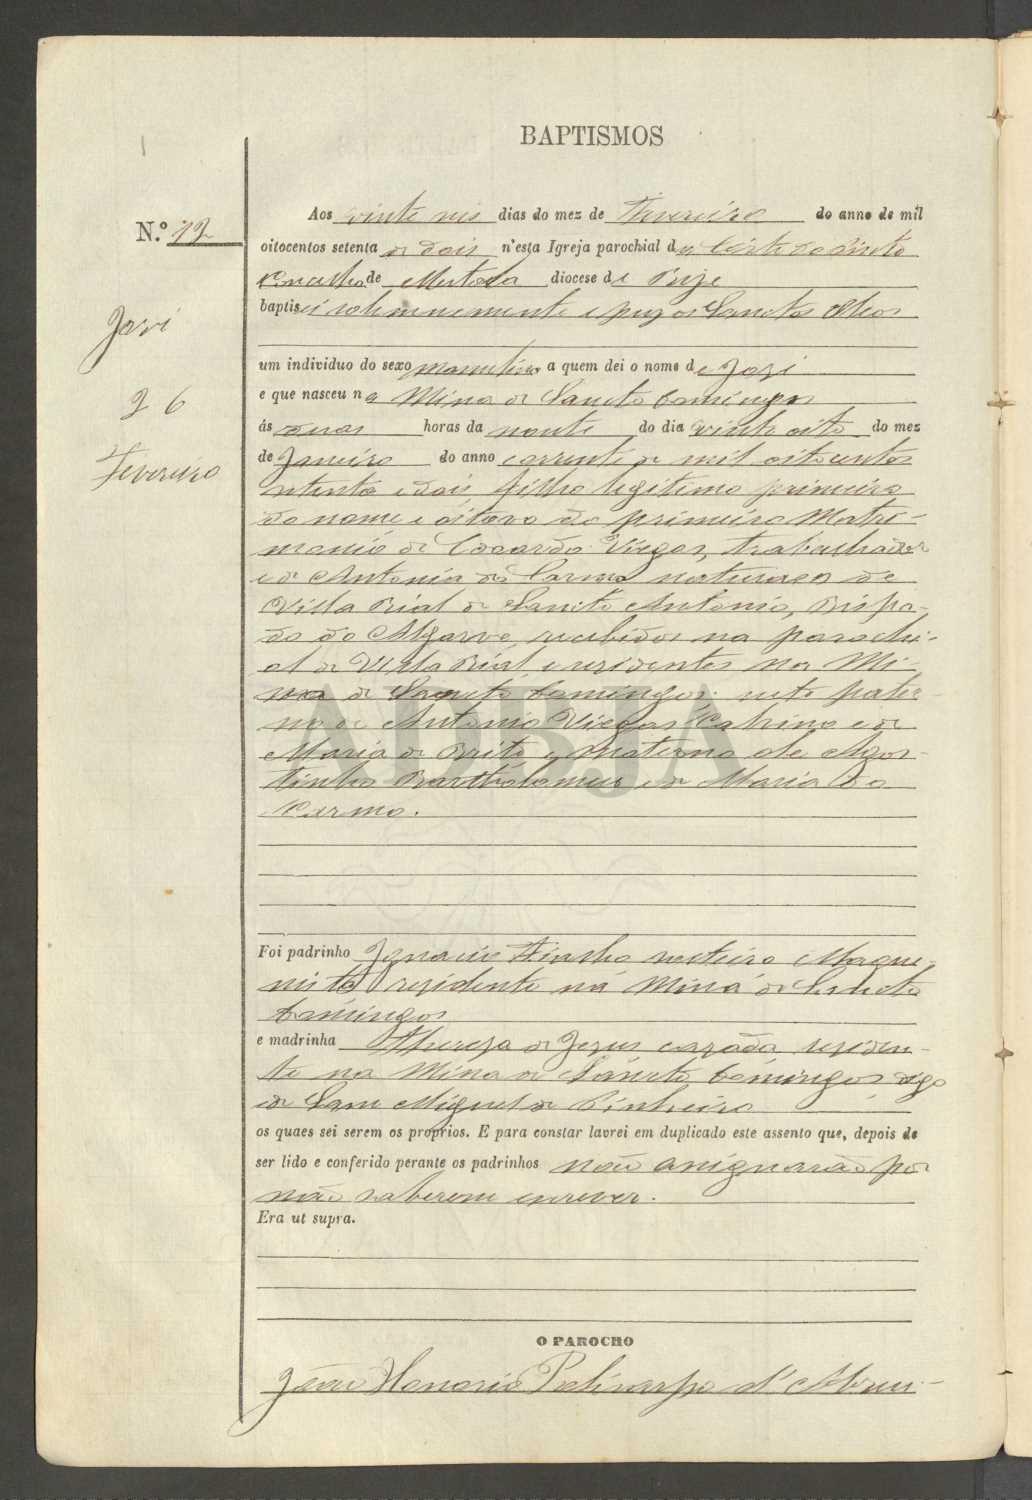 BAPTISMOS
N.º 12
José
26
Fevereiro
Aos vinte seis dias do mez de Fevereiro do anno de mil
oitocentos setenta e dois n'esta Igreja parochial da Córte do Pinto
Concelho de Mertola diocese de Beja
baptisei solemnemente e puz os Sanctos Oleos
um individuo do sexo masculino a quem dei o nome de José
e que nasceu na Mina de Sancto Domingos
ás duas horas da noute do dia vinte oito do mez
de Janeiro do anno corrente de mil oitocentos
setenta e dois, filho legitimo primeiro
do nome e oitavo do primeiro Matri-
monio de Eduardo Viegas, trabalhador
e de Antonia do Carmo naturaes de
Villa Rial de Sancto Antonio, Bispa-
do do Algarve, recebidos na parochi-
al de Villa Rial, e residentes na Mi-
na de Sancto Domingos: neto pater-
no de Antonio Viegas Calvino e de
Maria de Brito e materno de Agos-
tinho Bartholomeu e de Maria do
Carmo.
Foi padrinho Ignacio Fialho solteiro Maque-
nista residente na Mina de Sancto
Domingos
e madrinha Thereza de Jezus cazada residen-
te na Mina de Sancto Domingos digo
de Sam Miguel do Pinheiro
os quaes sei serem os proprios. E para constar lavrei em duplicado este assento que, depois de
ser lido e conferido perante os padrinhos não assignarão por
não saberem escrever.
Era ut supra.
O PAROCHO
João Honorio Policarpo d'Abreu
ADBJA